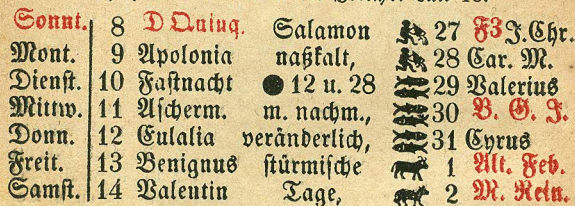 Sonnt. 8 D Quinq. Salamon 27 F3 J. Chr.
Mont. 9 Apolonia naßkalt, 28 Car. M.
Dienst. 10 Fastnacht ● 12 u. 28 29 Valerius
Mittw. 11 Ascherm. m. nachm., 30 B. G. J.
Donn. 12 Eulalia veränderlich, 31 Cyrus
Freit. 13 Benignus stürmische 1 Alt. Feb.
Samst. 14 Valentin Tage, 2 M. Rein.